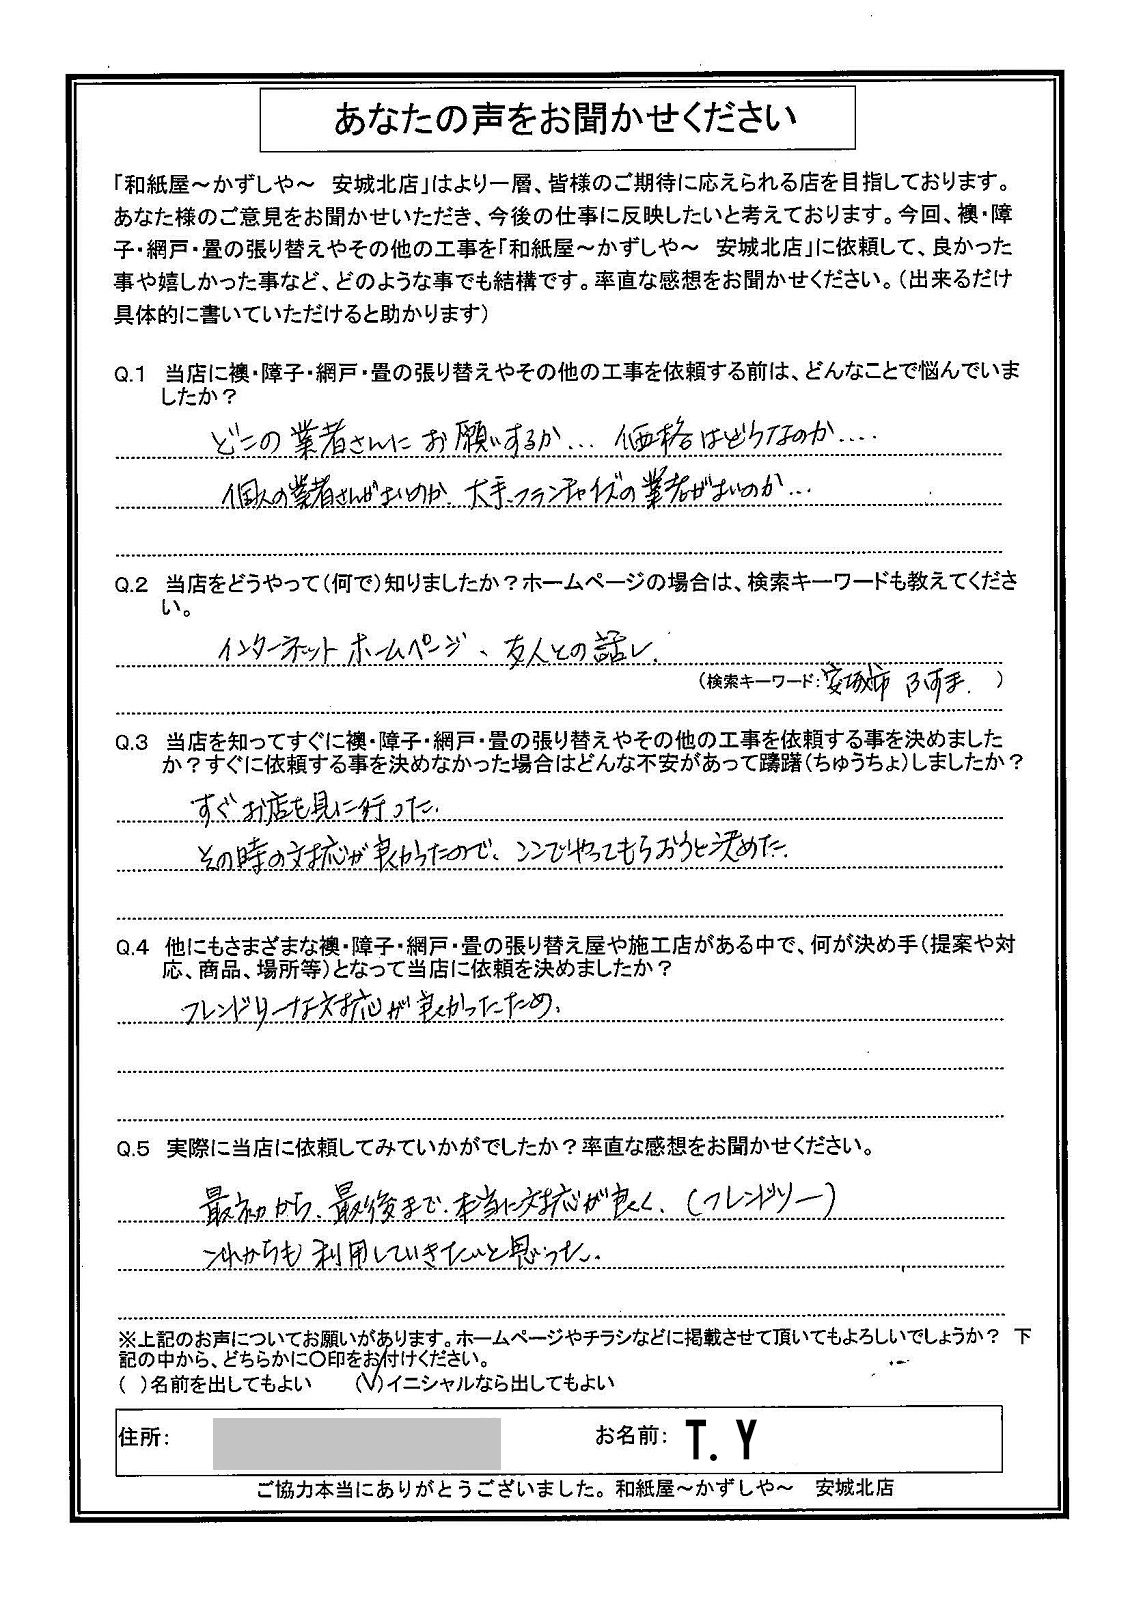 あなたの声をお聞かせください
「和紙屋～かずしや～　安城北店」はより一層、皆様のご期待に応えられる店を目指しております。
あなた様のご意見をお聞かせいただき、今後の仕事に反映したいと考えております。今回、襖・障
子・網戸・畳の張り替えやその他の工事を「和紙屋～かずしや～　安城北店」に依頼して、良かった
事や嬉しかった事など、どのような事でも結構です。率直な感想をお聞かせください。（出来るだけ
具体的に書いていただけると助かります）
Q.1　当店に襖・障子・網戸・畳の張り替えやその他の工事を依頼する前は、どんなことで悩んでいま
したか？
どこの業者さんにお願いするか… 価格はどうなのか‥‥
個人の業者さんがよいのか、大手フランチャイズの業者がよいのか…
Q.2　当店をどうやって（何で）知りましたか？ホームページの場合は、検索キーワードも教えてくださ
い。
インターネット ホームページ、友人との話し.
（検索キーワード：安城市 ふすま. ）
Q.3　当店を知ってすぐに襖・障子・網戸・畳の張り替えやその他の工事を依頼する事を決めました
か？すぐに依頼する事を決めなかった場合はどんな不安があって躊躇（ちゅうちょ）しましたか？
すぐお店を見に行った.
その時の対応が良かったので、ココでやってもらおうと決めた.
Q.4　他にもさまざまな襖・障子・網戸・畳の張り替え屋や施工店がある中で、何が決め手（提案や対
応、商品、場所等）となって当店に依頼を決めましたか？
フレンドリーな対応が良かったため.
Q.5　実際に当店に依頼してみていかがでしたか？率直な感想をお聞かせください。
最初から、最後まで、本当に対応が良く、（フレンドリー）
これからも利用していきたいと思った.
※上記のお声についてお願いがあります。ホームページやチラシなどに掲載させて頂いてもよろしいでしょうか？　下
記の中から、どちらかに〇印をお付けください。
（ ）名前を出してもよい　　（✓）イニシャルなら出してもよい
住所：　お名前： T. Y
ご協力本当にありがとうございました。和紙屋～かずしや～　安城北店